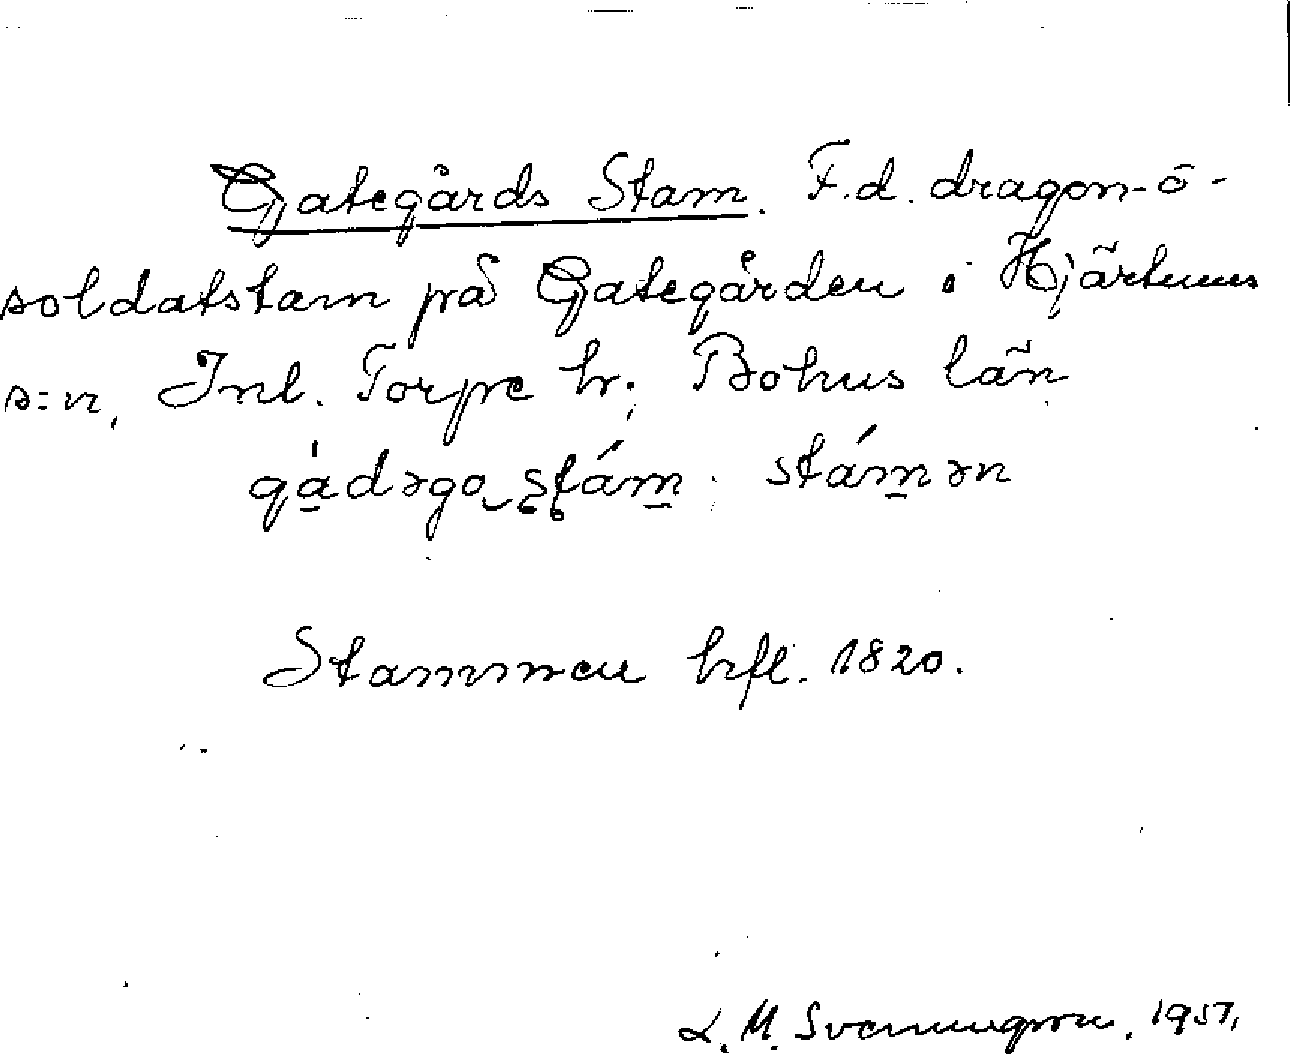 Gategårds Stam. F.d. dragon- o -
soldatstam på Gategården i Hjärtums
s:n, Inl. Torpe hr; Bohus län
gàdəga ştám: stámən
Stammen bfl. 1820.
L. M. Svenungsson. 1957.